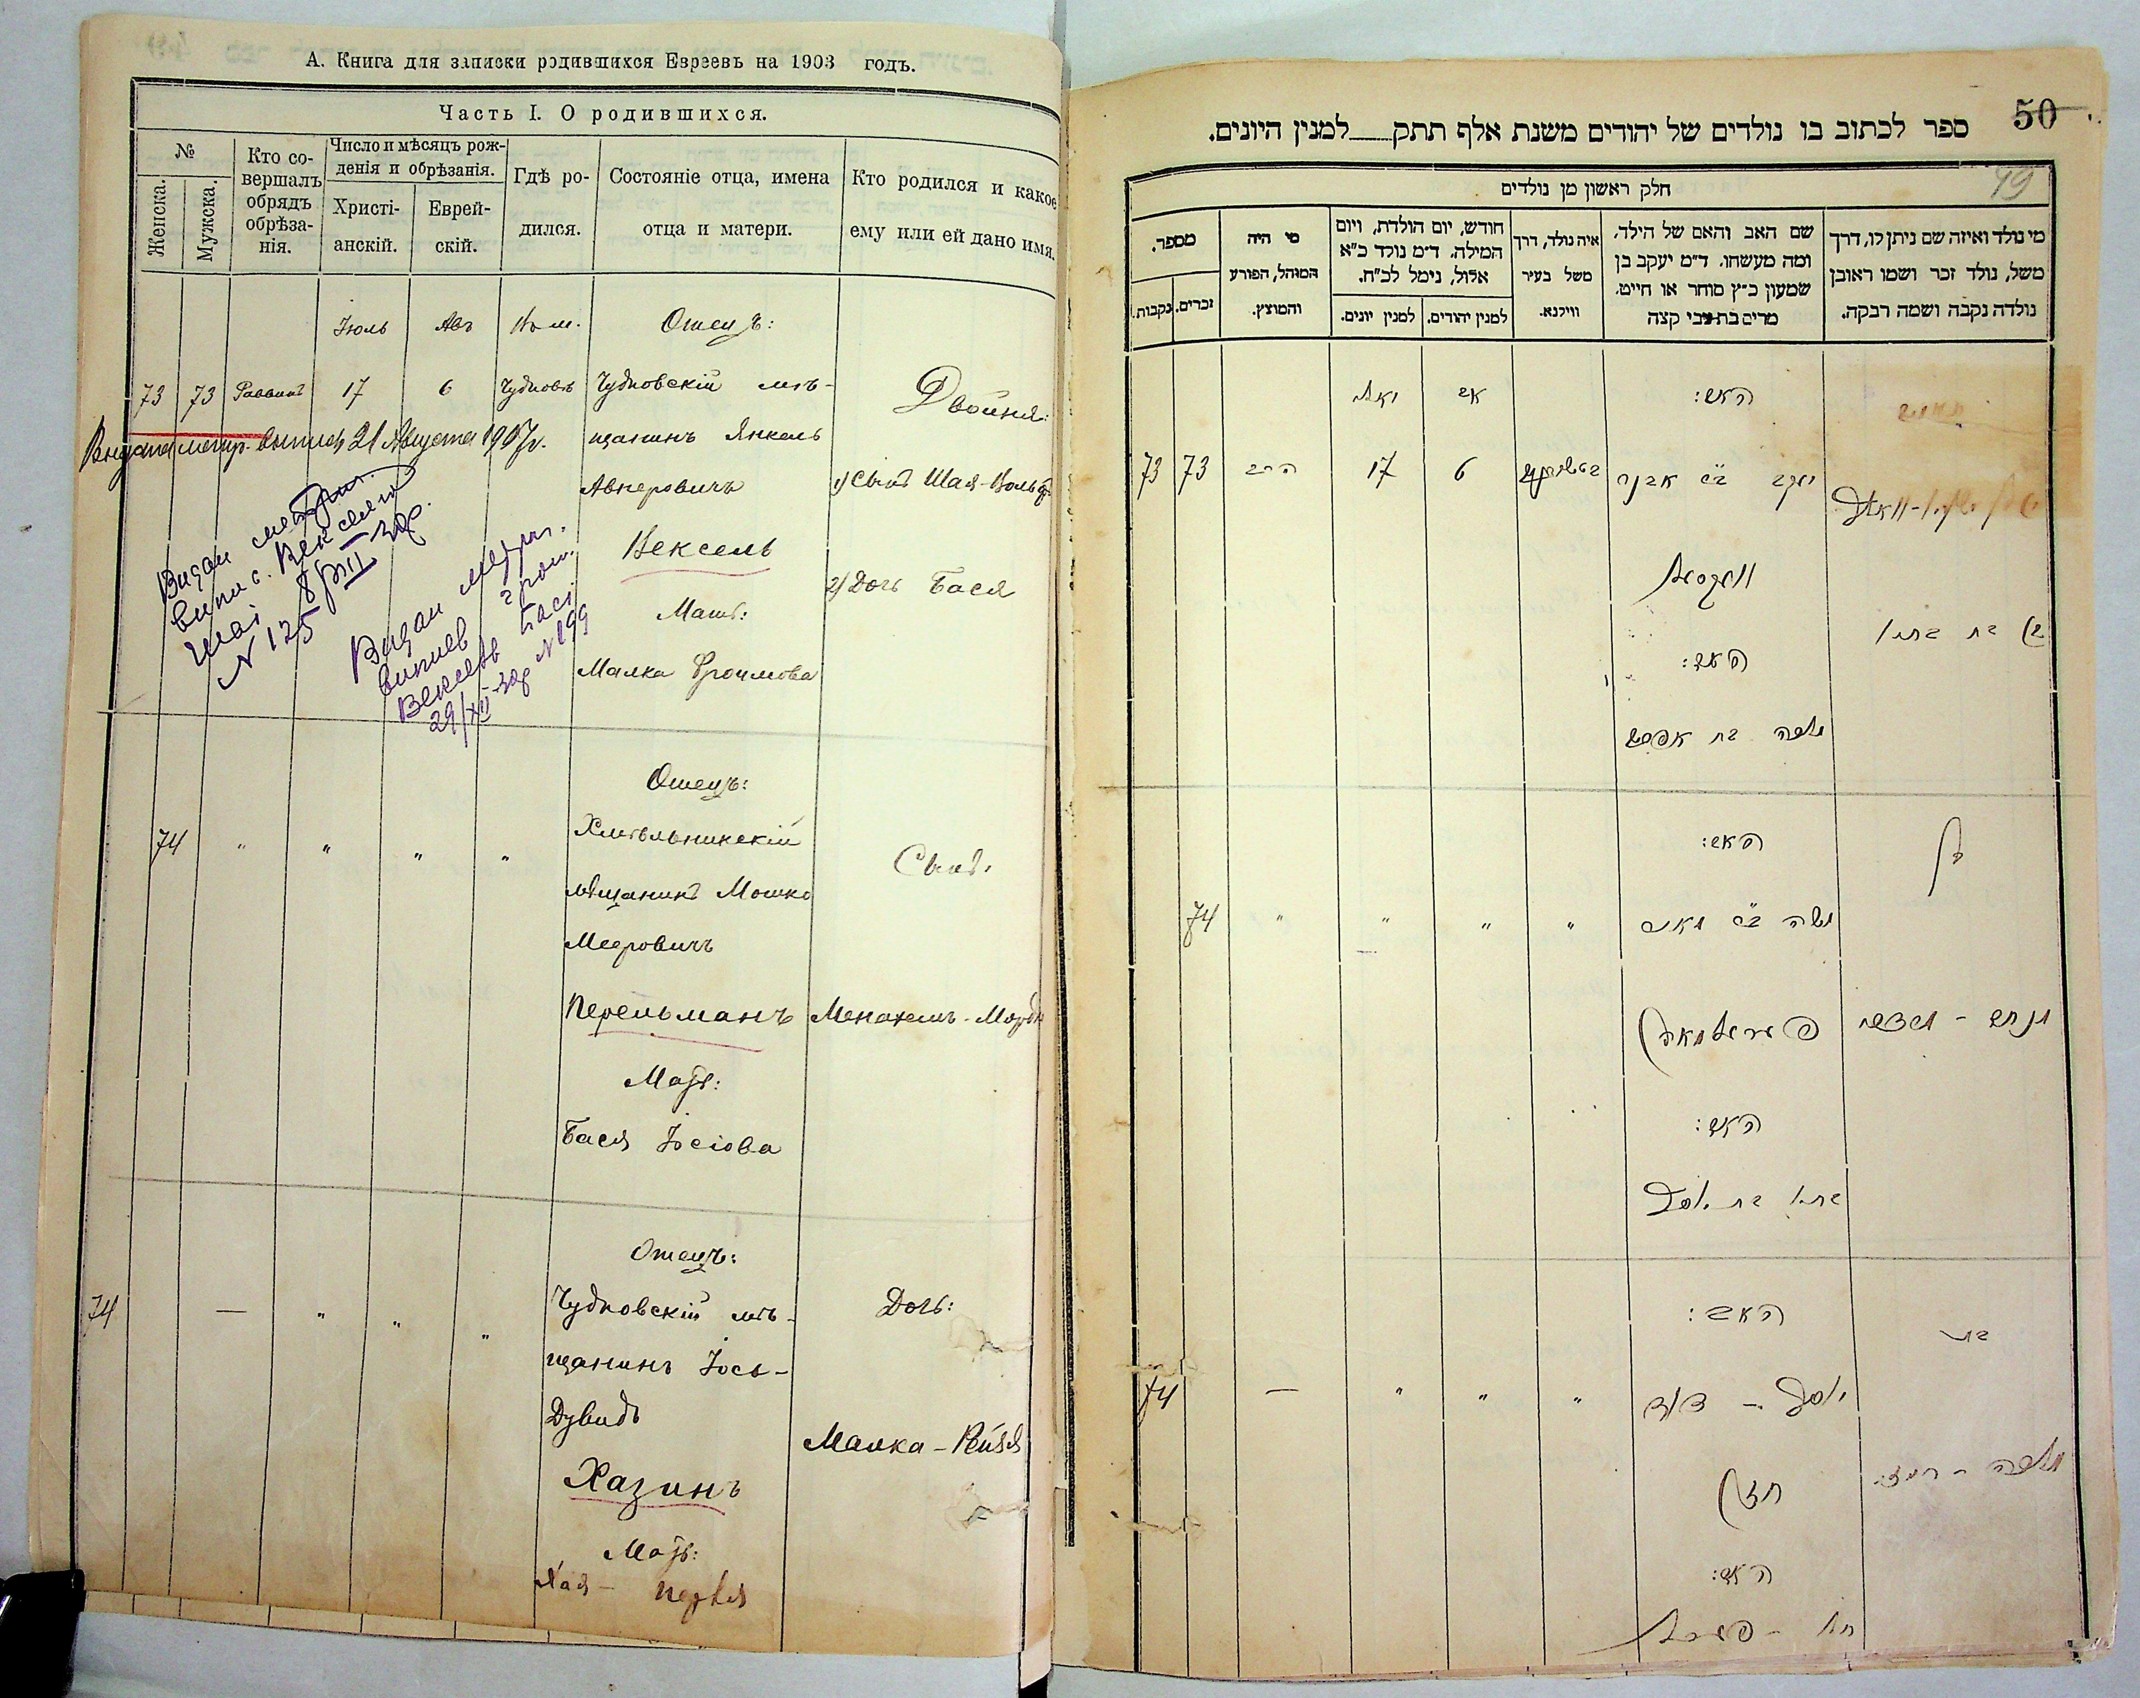 А. Книга для записки родившихся Евреевъ на 1903 годъ.
Часть I. О родившихся.
№
Женска.
Мужска.
Кто со-
вершалъ
обрядъ
обрѣза-
нія.
Число и мѣсяцъ рож-
денія и обрѣзанія.
Христі-
анскій.
Еврей-
скій.
Гдѣ ро-
дился.
Состояніе отца, имена
отца и матери.
Кто родился и какое
ему или ей дано имя.
Іюль Авъ Въ м. Отецъ:
73 73 Раввинъ 17 6 Чудновъ Чудновскій мѣ-
щанинъ Янкель
Авнеровичъ
Вексель
Мать:
Малка Фроимова
Двойня:
1) Сынъ Шая-Вольф
2) Дочь Бася
Выдана метр. выпись 21 Августа 1907г.
Видан метрич.
випис. Векселю
Шаі
N 125
Видан метрич.
випись
Вексель Басі
29/XII-30р N 199
Отецъ:
74 " " " " Хмѣльникскій
мѣщанинъ Мошко
Мееровичъ
Перельманъ
Мать:
Бася Іосіова
Сынъ.
Менахемъ-Мордк
Отецъ:
74 — " " " Чудновскій мѣ-
щанинъ Іось-
Дувидъ
Хазинъ
Мать:
Хая - Перля
Дочь:
Малка-Рейзя
50
49
ספר לכתוב בו נולדים של יהודים משנת אלף תתק___למנין היונים.
חלק ראשון מן נולדים
מי נולד ואיזה שם ניתן לו, דרך
משל, נולד זכר ושמו ראובן
נולדה נקבה ושמה רבקה.
שם האב והאם של הילד.
ומה מעשהו. ד״מ יעקב בן
שמעון כ״ץ סוחר או חייט.
מרים בת צבי קצה
איה נולד, דרך
משל בעיר
ווילנא.
חודש, יום הולדת, ויום
המילה. ד״מ נולד כ״א
אלול, נימל לכ״ח.
למנין יהודים.
למנין יונים.
מי היה
המוהל, הפורע
והמוצץ.
מספר.
זכרים.
נקבות.
האב:
אב
73 73 הרב 17 6
יעקב ב״ר אבנר
וועקסעל
האם:
מלכה בת אפרים
ב) בת בתי׳
האב:
בן
74 " " " "
משה ב״ר מאיר
פערעלמאן
מנחם - מרדכי
האם:
בתי׳ בת יוסף
האב:
בת
74 — " " "
יוסף - דוד
חזן
מלכה - רייזי
האם:
חי׳ - פערל